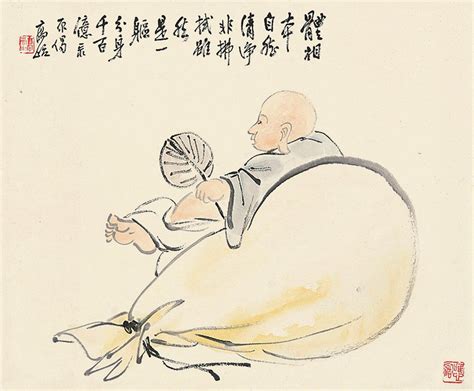 體相
本
自然
清淨
非拂
拭雖
然
是一
軀
分身
千百
億
偈